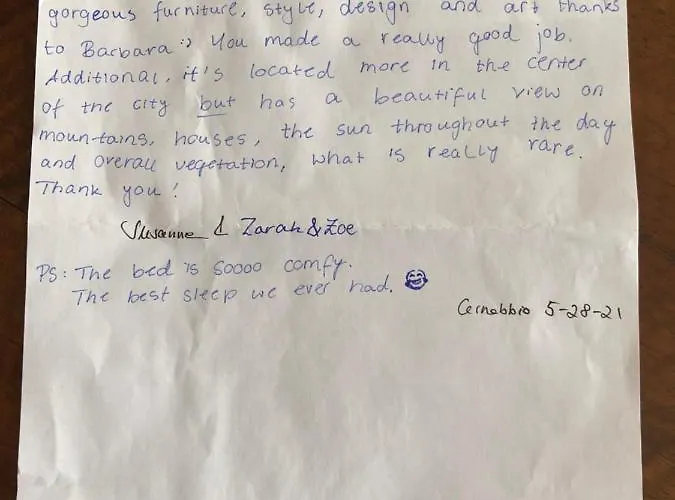 gorgeous furniture, style, design and art thanks
to Barbara :) You made a really good job.
Additional, it's located more in the center
of the city but has a beautiful view on
mountains, houses, the sun throughout the day
and overall vegetation, what is really rare.
Thank you!
Susanne & Zarah & Zoe
PS: The bed is soooo comfy.
The best sleep we ever had. 😂
Cernobbio 5-28-21